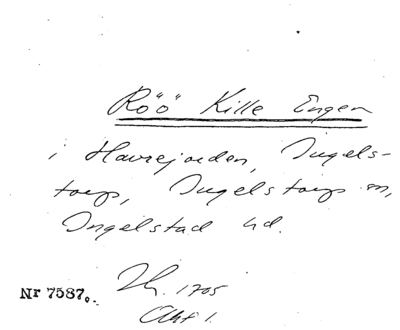 Röö Kille Engen
i Havrejorden, Ingels-
torp, Ingelstorps sn,
Ingelstad hd.
Nr 7587. Lh. 1705
Akt 1.